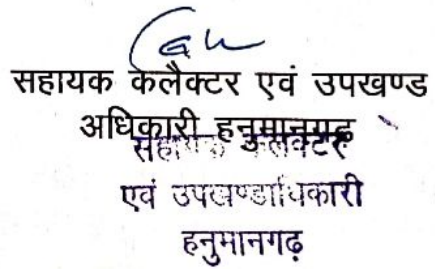 सहायक कलैक्टर एवं उपखण्ड
अधिकारी हनुमानगढ़
सहायक कलक्टर
एवं उपखण्डाधिकारी
हनुमानगढ़